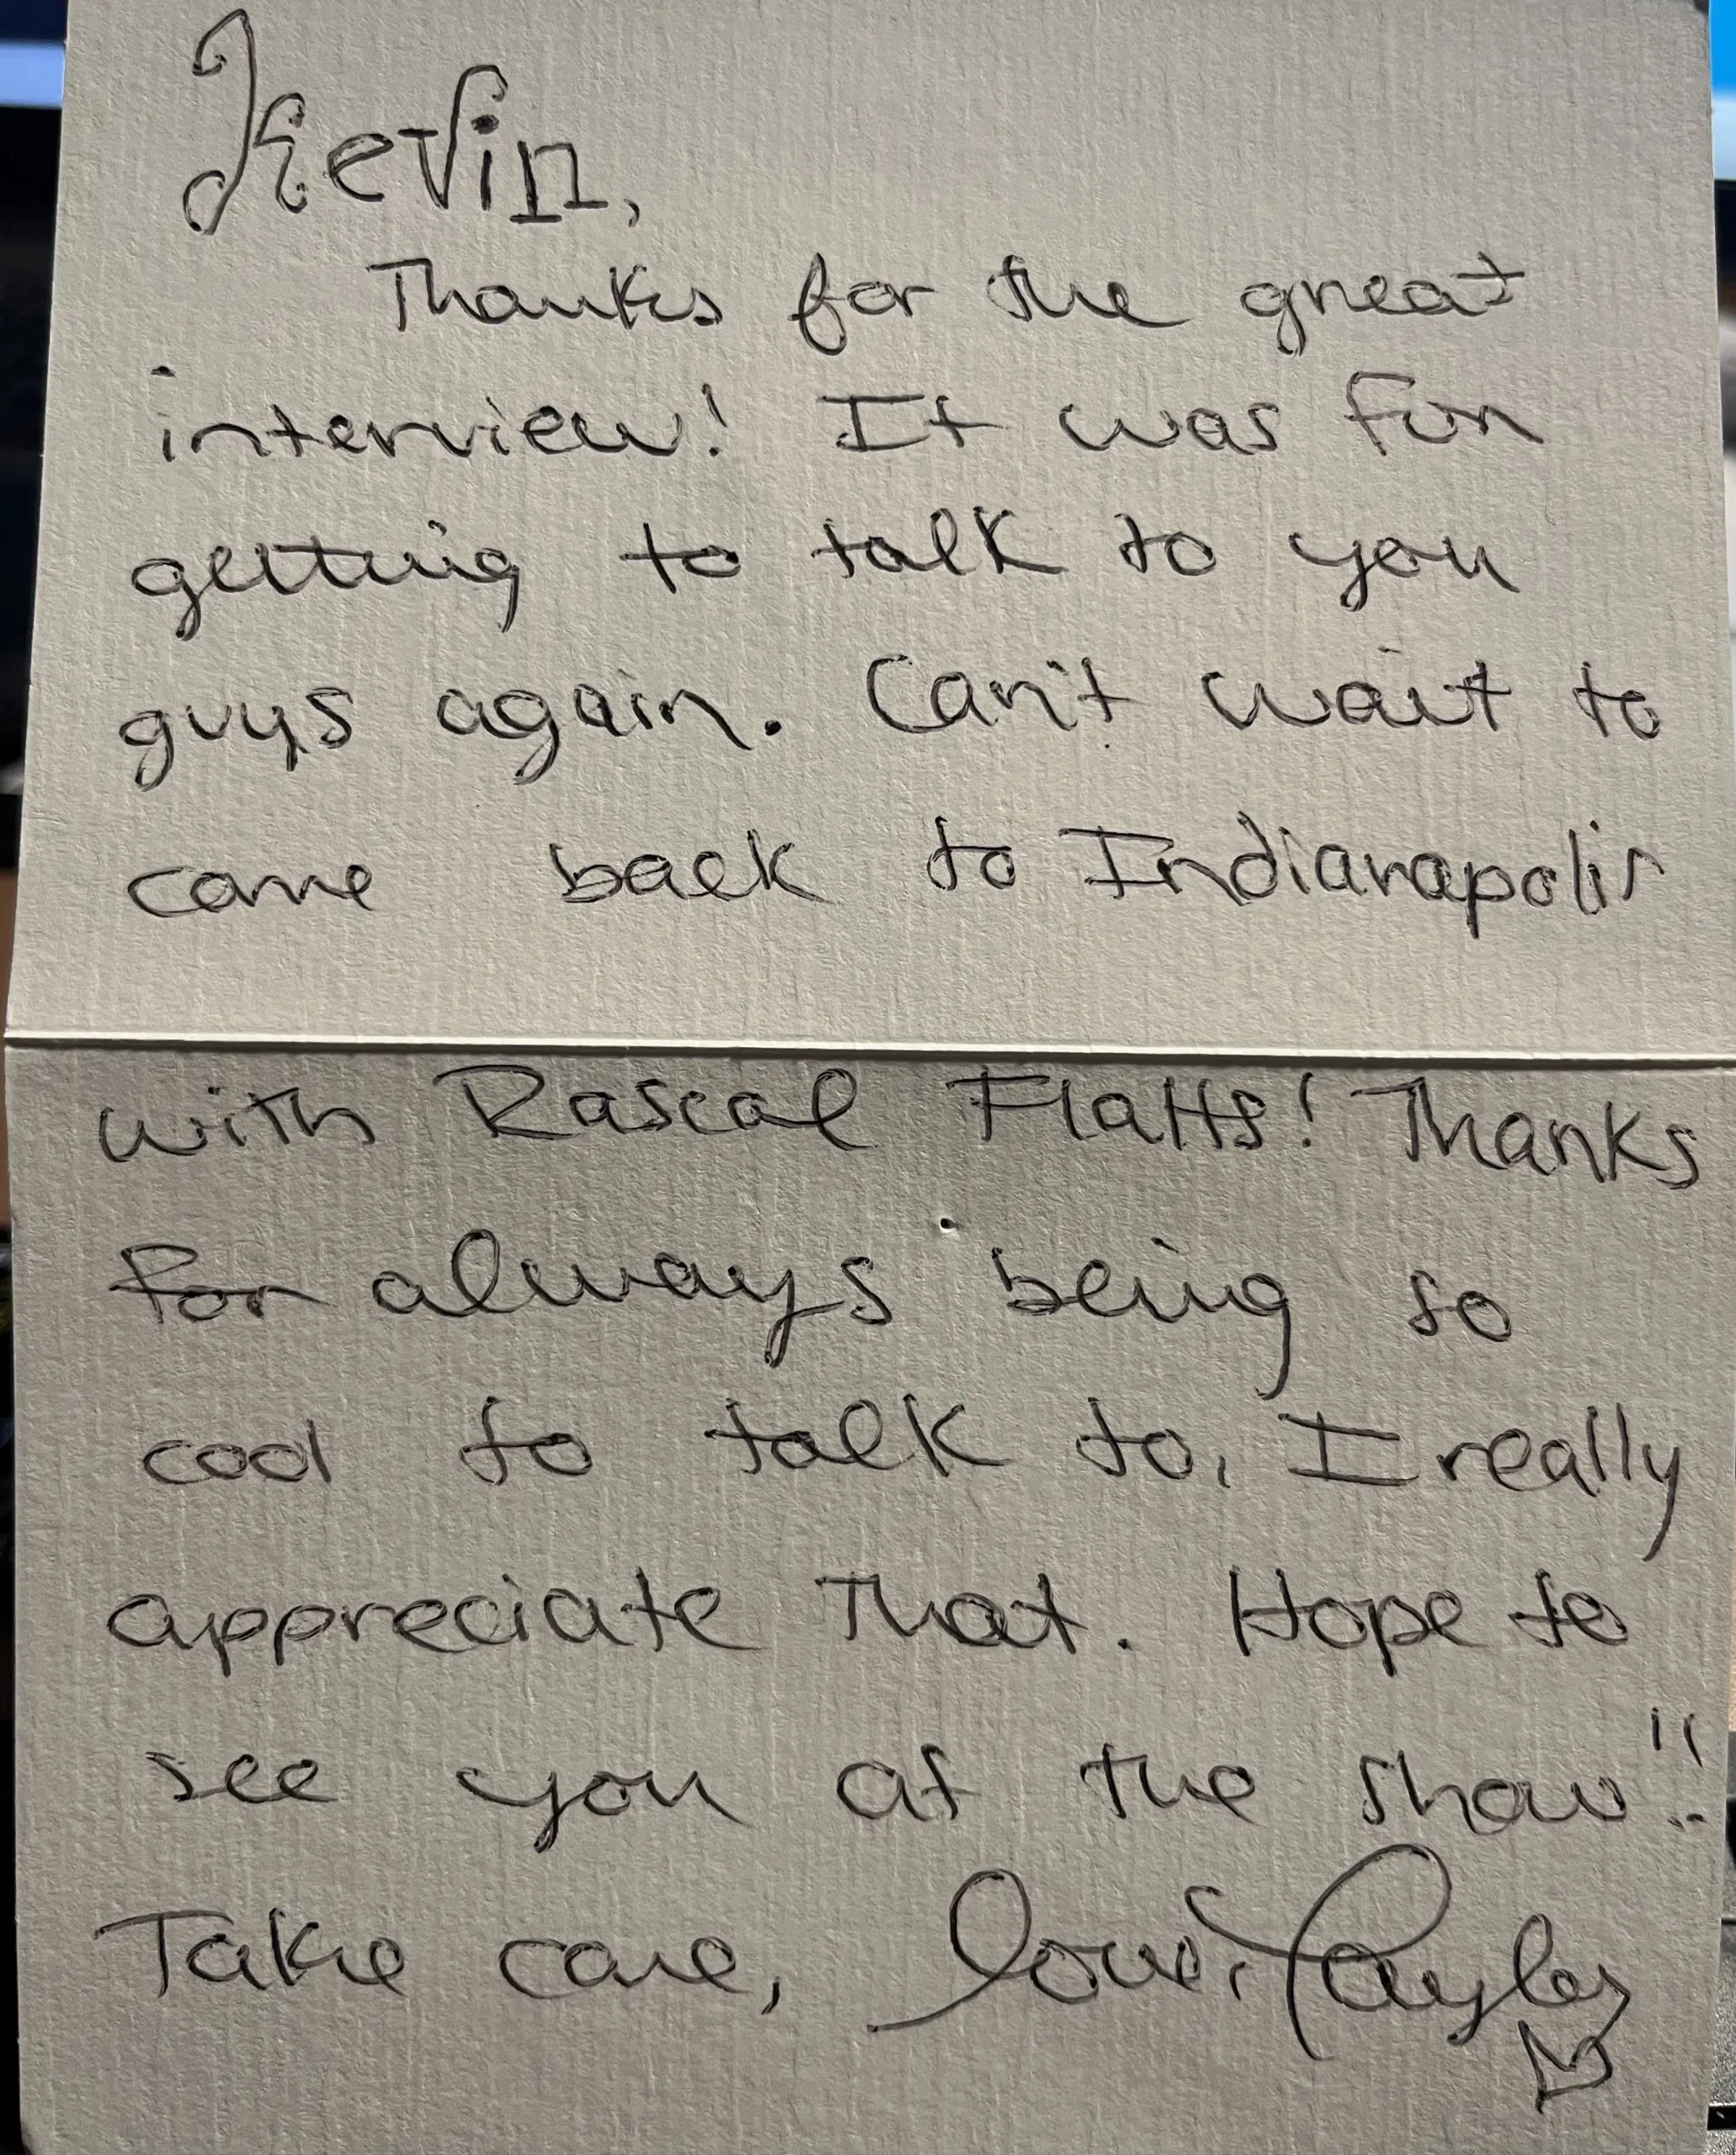 Kevin,
Thanks for the great
interview! It was fun
getting to talk to you
guys again. Can't wait to
come back to Indianapolis
with Rascal Flatts! Thanks
for always being so
cool to talk to, I really
appreciate that. Hope to
see you at the show!!
Take care, love, Taylor